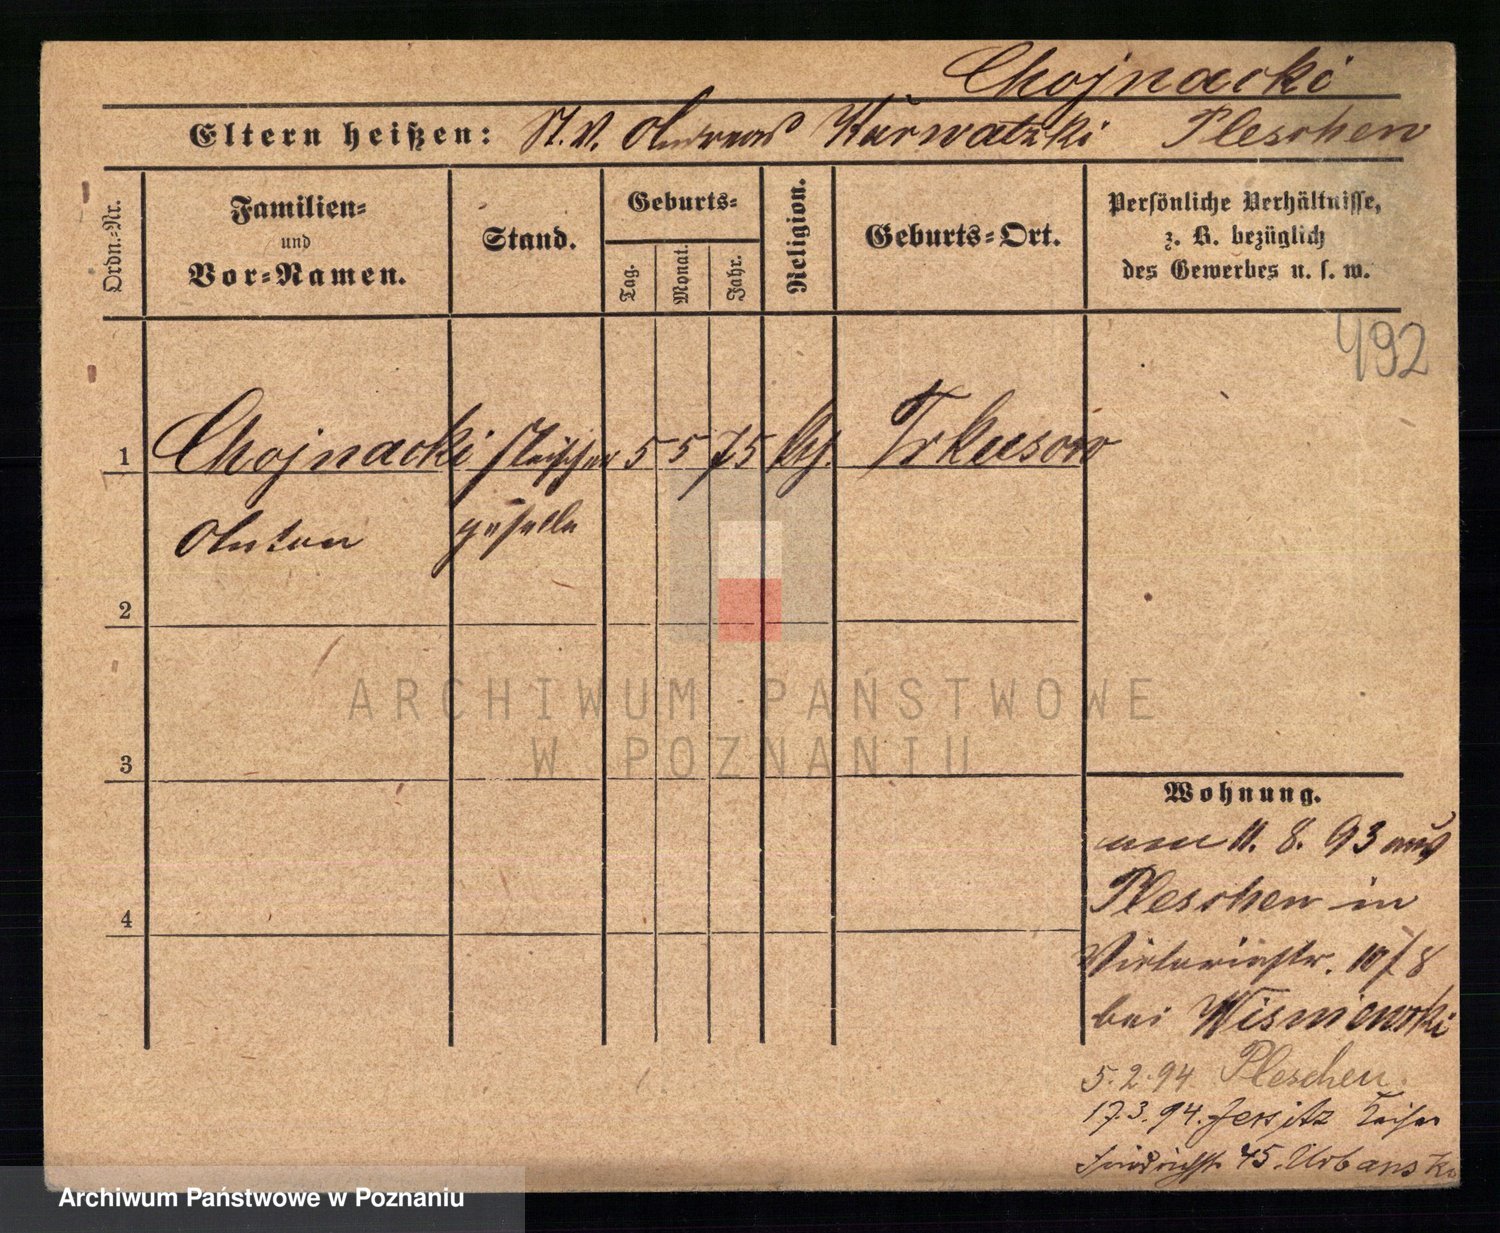 Chojnacki
Eltern heißen: St. V. Andreas Kurwatzki Pleschen
Ordn.-Nr.
Familien- und Vor-Namen.
Stand.
Geburts-
Tag.
Monat.
Jahr.
Religion.
Geburts-Ort.
Persönliche Verhältnisse,
z. B. bezüglich
des Gewerbes u. s. w.
492
1 Chojnacki Fleischer 5 5 75 kth. Turkusow
Anton geselle
2
3
4
Wohnung.
am 11. 8. 93 aus
Pleschen in
Victoriastr. 10/8
bei Wisniewski
5.2.94 Pleschen.
17.3.94. Jersitz Kaiser
Friedrichstr. 45. Urbanski
ARCHIWUM PAŃSTWOWE
W POZNANIU
Archiwum Państwowe w Poznaniu